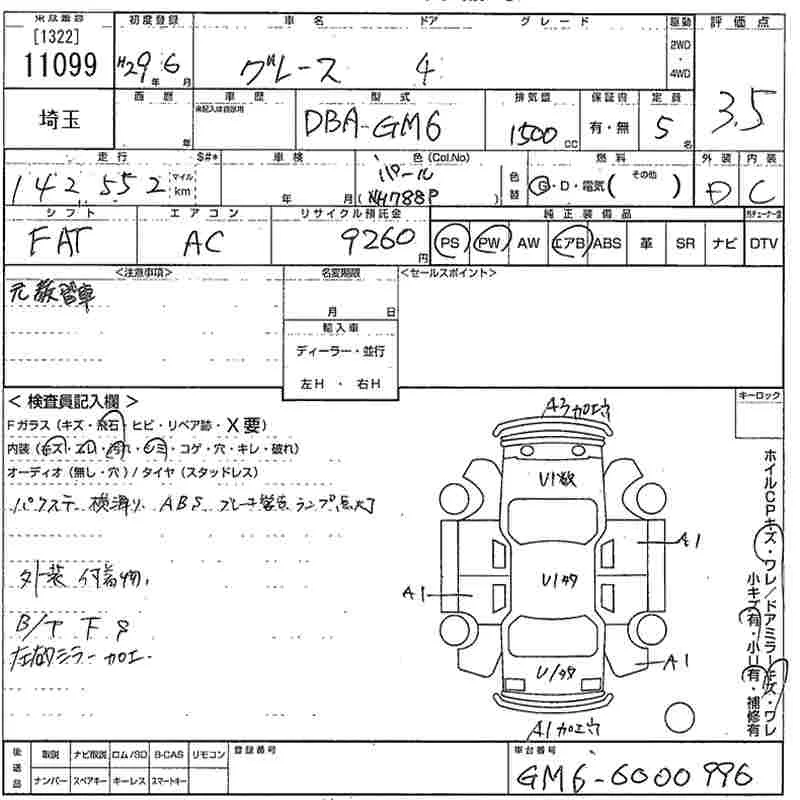 [1322]
11099
埼玉
初度登録
H29年 6月
車名 ドア グレード
グレース 4
駆動
2WD
・
4WD
評価点
3.5
西暦
年
車歴
未記入は自家用
型式
DBA-GM6
排気量
1500 CC
保証書
有・無
定員
5名
走行 $#*
142552 マイル km
車検
年 月
色 (Col.No)
パール
(NH788P)
色替
燃料
G・D・電気( その他 )
外装
D
内装
C
シフト
FAT
エアコン
AC
リサイクル預託金
9260円
純正装備品
PS PW AW エアB ABS 革 SR ナビ DTV
<注意事項>
元教習車
名変期限
月 日
輸入車
ディーラー・並行
左H ・ 右H
<セールスポイント>
< 検査員記入欄 >
Fガラス (キズ・飛石・ヒビ・リペア跡・X要)
内装 (キズ・スレ・汚れ・シミ・コゲ・穴・キレ・破れ)
オーディオ (無し・穴) / タイヤ (スタッドレス)
パワステ 横滑り ABS ブレーキ警告 ランプ点灯
外装 付着物,
B/T下S
左右ミラー加工.
キーロック
A3加工穴
U1数
A1
U1多数
A1
A1
U1多数
A1加工穴
ホイルCPキズ・ワレ/ドアミラーキズ・ワレ
小キズ有・小U有・補修有
後送品
取説 ナビ取説 ロム/SD B-CAS リモコン
ナンバー スペアキー キーレス スマートキー
登録番号
車台番号
GM6-6000996